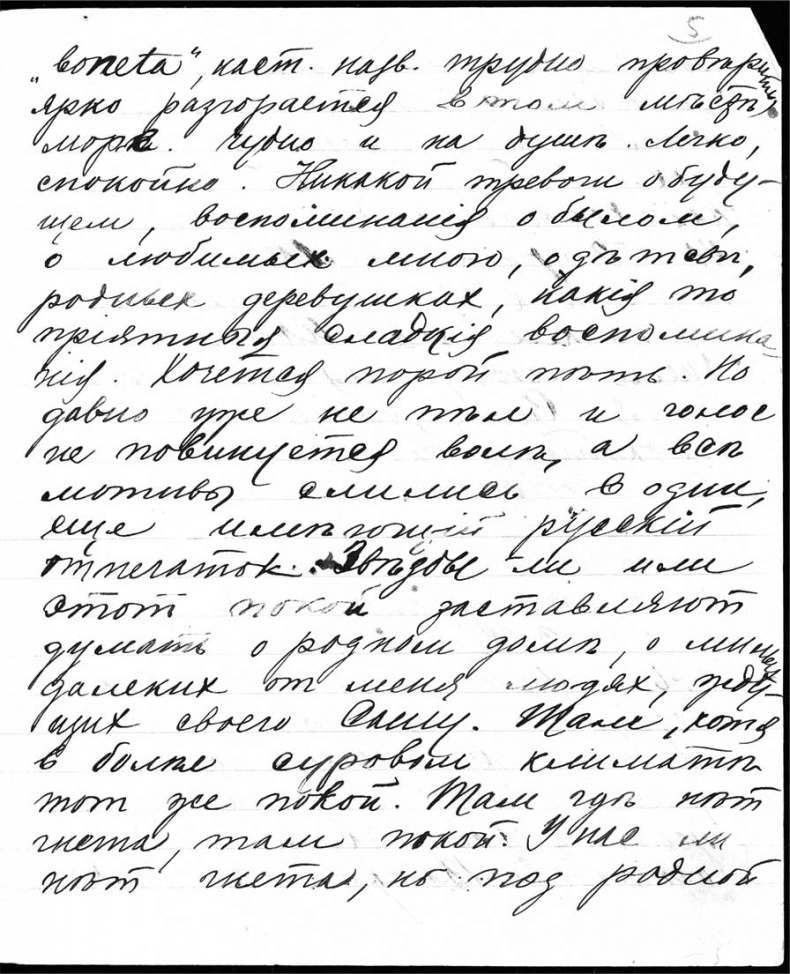 5
„boneta“, наст. назв. трудно проверить
ярко разгорается в том мѣстѣ
моря. Чудно и на душѣ. Легко,
спокойно. Никакой тревоги о буду-
щем, воспоминанія о былом,
о любимых мною, о дѣтсвѣ,
родных деревушках, какія то
пріятныя сладкія воспомина-
нія. Хочется порой пѣть. Но
давно уже не пѣл и голос
не повинуется волѣ, а всѣ
мотивы слились в один,
еще имѣющій русскій
отпечаток. Звѣзды ли или
этот покой заставляют
думать о родном домѣ, о милых
далеких от меня людях, жду-
щих своего Сашу. Там, хотя
в болѣе суровом климатѣ
тот же покой. Там гдѣ нѣт
гнета, там покой. У нас ли
нѣт гнета, но под родной